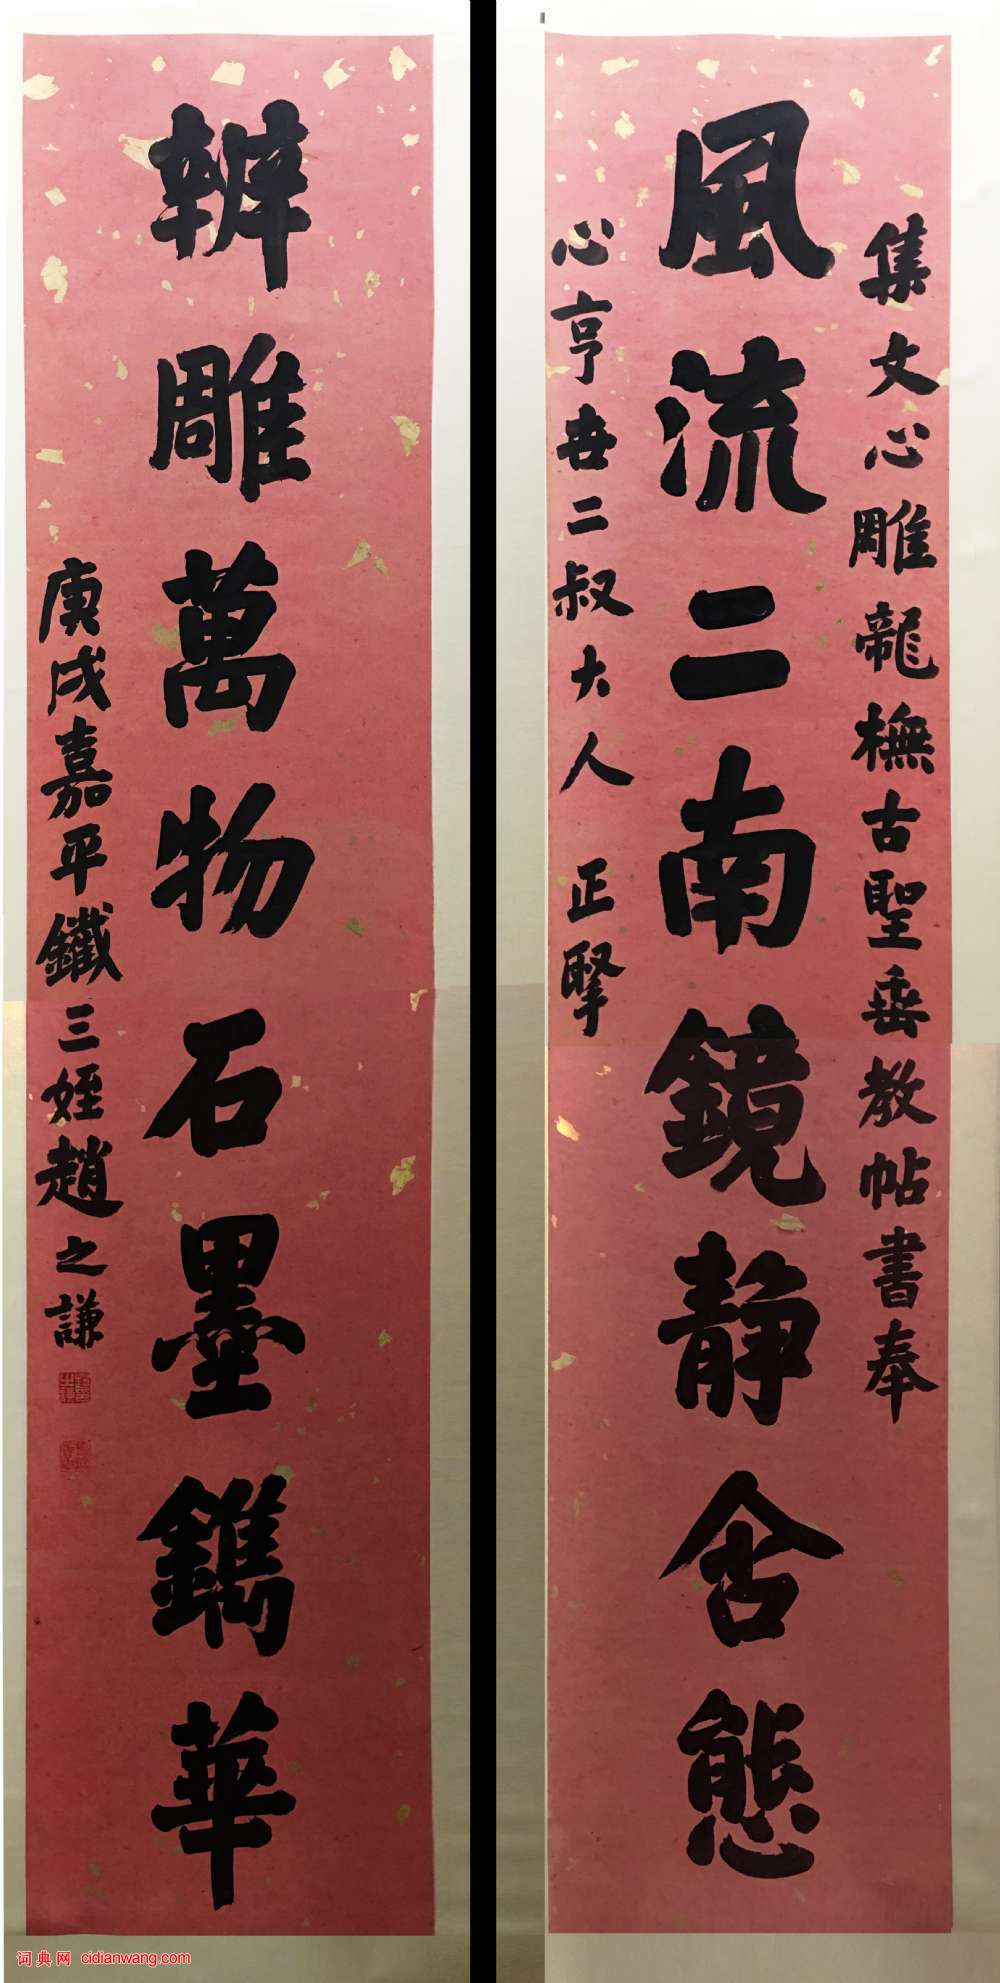 集文心雕龍橅古聖垂教帖書奉
風流二南鏡静含態
心亨世二叔大人正擊
辨雕萬物石墨鐫華
庚戌嘉平鐵三姪趙之謙
词典网 cidianwang.com